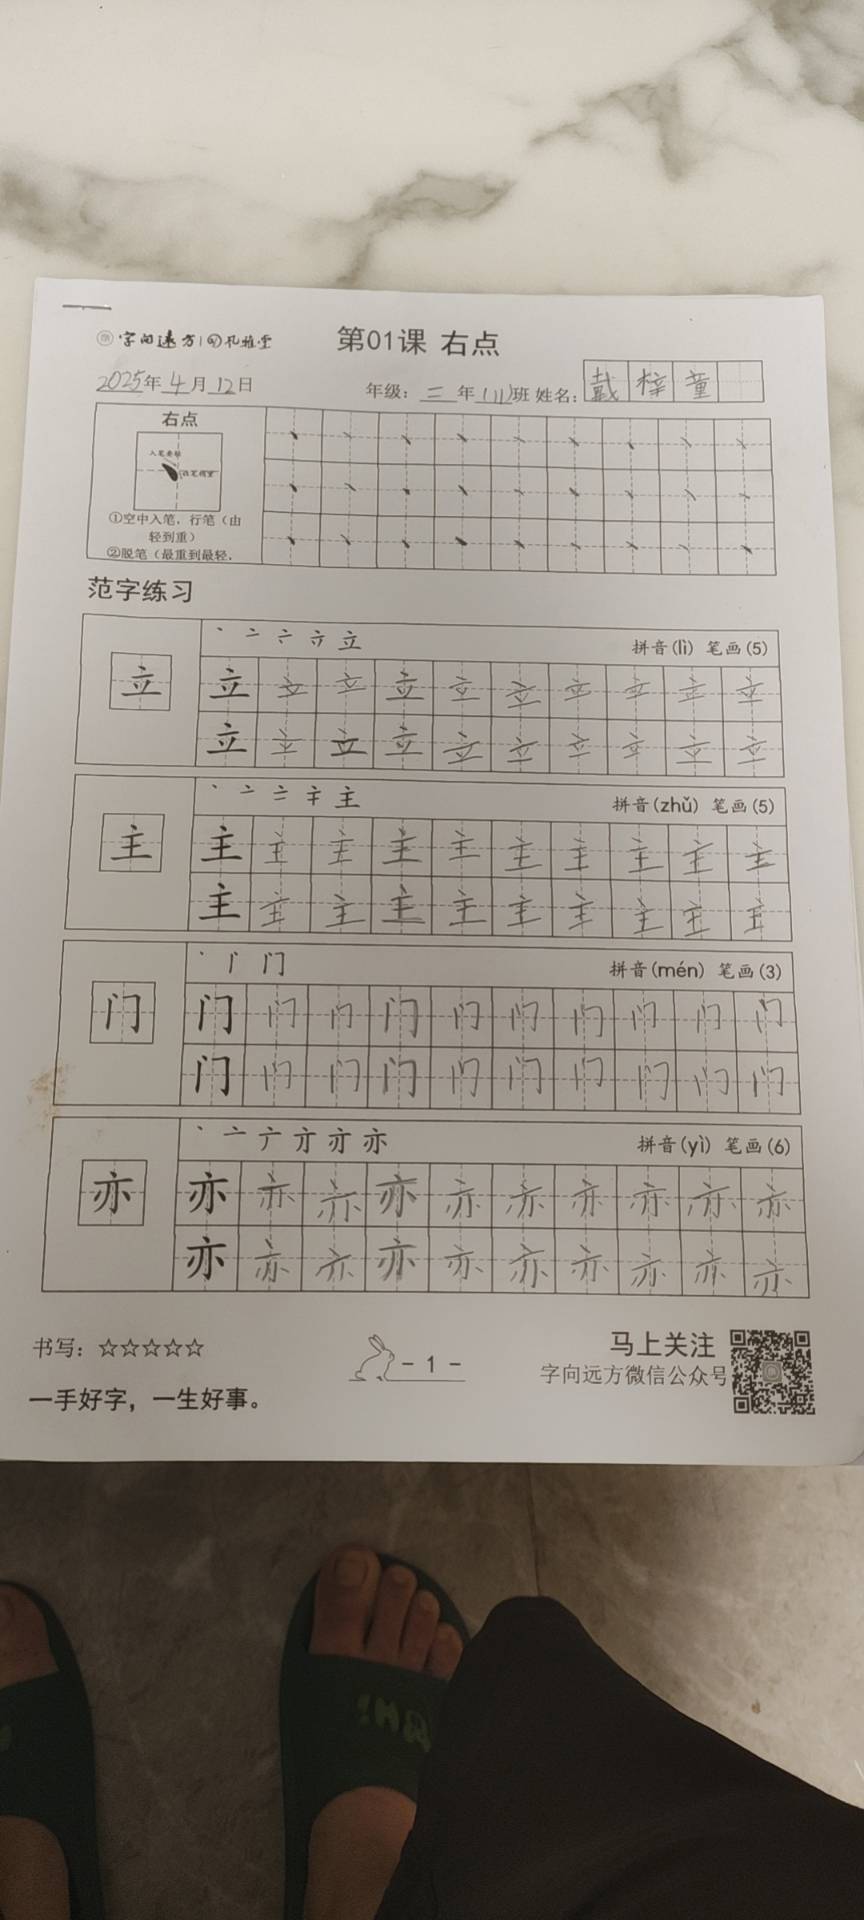 字向远方 孔雅堂
第01课 右点
2025年4月12日 年级：三年(1)班 姓名：戴梓童
右点
入笔要轻
收笔稍重
①空中入笔，行笔（由
轻到重）
②脱笔（最重到最轻.
范字练习
丶 亠 立 拼音(lì) 笔画(5)
立 立 立 立 立 立 立 立 立 立 立
立 立 立 立 立 立 立 立 立 立
丶 亠 二 主 拼音(zhǔ) 笔画(5)
主 主 主 主 主 主 主 主 主 主 主
主 主 主 主 主 主 主 主 主 主
丶 门 拼音(mén) 笔画(3)
门 门 门 门 门 门 门 门 门 门 门
门 门 门 门 门 门 门 门 门 门
丶 亠 亦 拼音(yì) 笔画(6)
亦 亦 亦 亦 亦 亦 亦 亦 亦 亦 亦
亦 亦 亦 亦 亦 亦 亦 亦 亦 亦
书写：☆☆☆☆☆
- 1 -
马上关注
字向远方微信公众号
一手好字，一生好事。